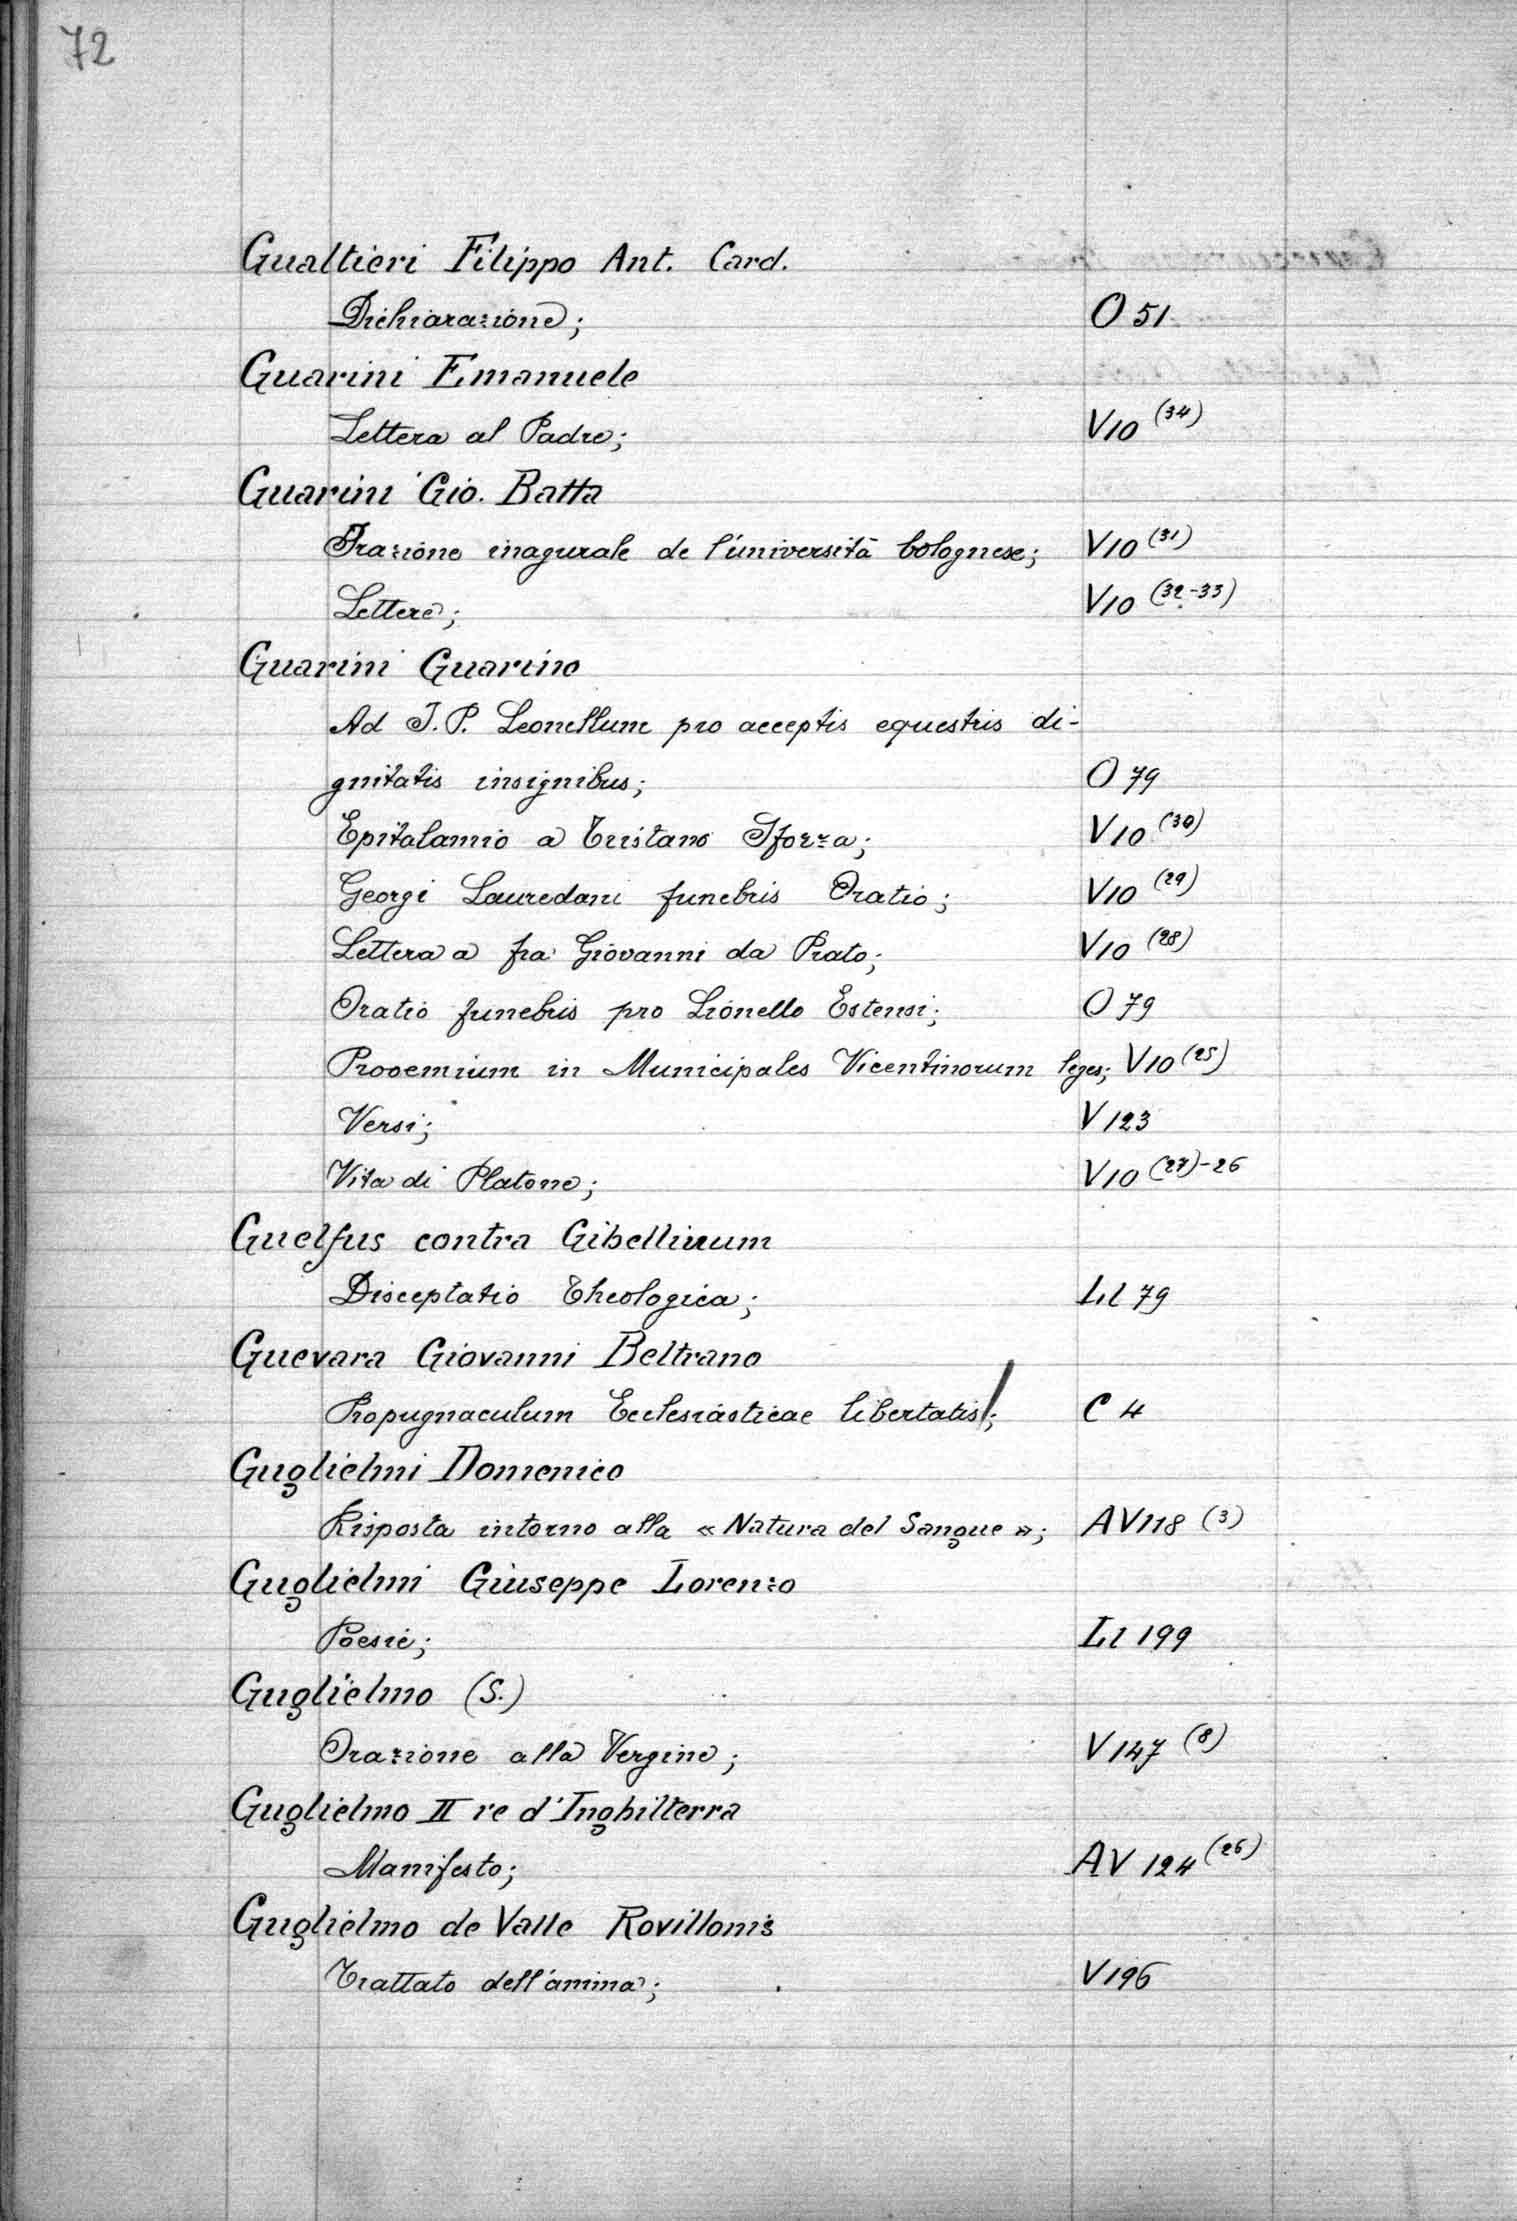 72
Gualtieri Filippo Ant. Card.
Dichiarazione; O 51
Guarini Emanuele
Lettera al Padre; V10 (34)
Guarini Gio. Batta
Orazione inagurale de l'università bolognese; V10 (31)
Lettere; V10 (32-33)
Guarini Guarino
Ad J. P. Leonellum pro acceptis equestris di-
gnitatis insignibus; O 79
Epitalamio a Tristano Sforza; V10 (30)
Georgi Lauredani funebris Oratio; V10 (29)
Lettera a fra Giovanni da Prato; V10 (28)
Oratio funebris pro Lionello Estensi; O 79
Prooemium in Municipales Vicentinorum leges; V10 (25)
Versi; V 123
Vita di Platone; V10 (27)-26
Guelfus contra Gibellinum
Disceptatio Theologica; L1 79
Guevara Giovanni Beltrano
Propugnaculum Ecclesiasticae libertatis; C 4
Guglielmi Domenico
Risposta intorno alla « Natura del Sangue »; AV118 (3)
Guglielmi Giuseppe Lorenzo
Poesie; L1 199
Guglielmo (S.)
Orazione alla Vergine; V 147 (8)
Guglielmo II re d'Inghilterra
Manifesto; AV 124 (26)
Guglielmo de Valle Rovillonis
Trattato dell'anima; V196